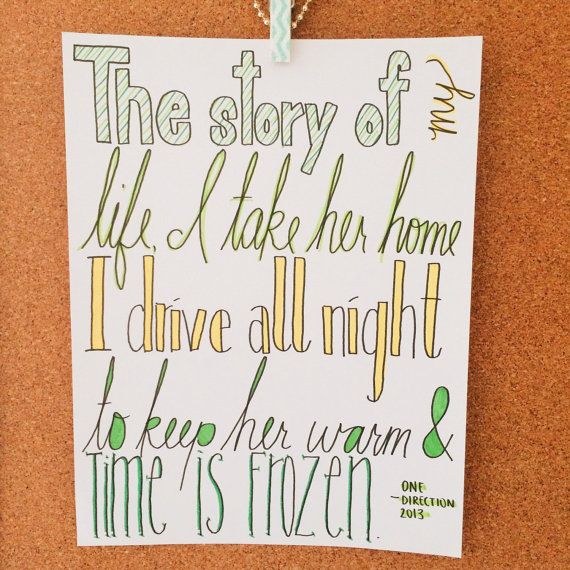 The story of my
life, I take her home
I drive all night
to keep her warm &
Time is Frozen.
ONE
-DIRECTION
2013